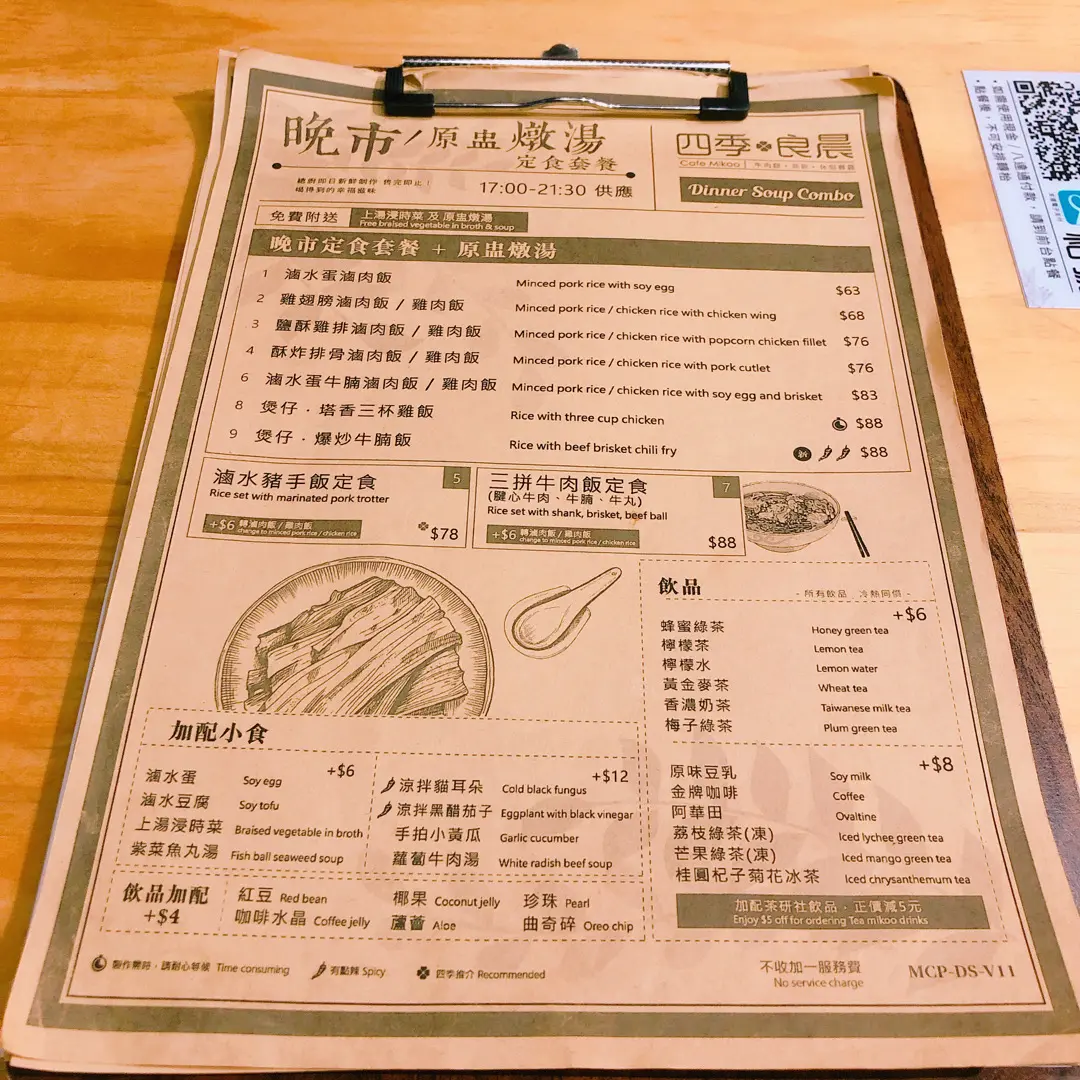 晚市/原盅燉湯
定食套餐
總廚即日新鮮創作 售完即止!
喝得到的幸福滋味
17:00-21:30 供應
四季良晨
Cafe Mikoo
Dinner Soup Combo
免費附送
上湯浸時菜 及 原盅燉湯
Free braised vegetable in broth & soup
晚市定食套餐 + 原盅燉湯
1 滷水蛋滷肉飯 Minced pork rice with soy egg $63
2 雞翅膀滷肉飯 / 雞肉飯 Minced pork rice / chicken rice with chicken wing $68
3 鹽酥雞排滷肉飯 / 雞肉飯 Minced pork rice / chicken rice with popcorn chicken fillet $76
4 酥炸排骨滷肉飯 / 雞肉飯 Minced pork rice / chicken rice with pork cutlet $76
6 滷水蛋牛腩滷肉飯 / 雞肉飯 Minced pork rice / chicken rice with soy egg and brisket $83
8 煲仔．塔香三杯雞飯 Rice with three cup chicken $88
9 煲仔．爆炒牛腩飯 Rice with beef brisket chili fry 新 $88
滷水豬手飯定食 5
Rice set with marinated pork trotter
+$6 轉滷肉飯 / 雞肉飯
change to minced pork rice / chicken rice
$78
三拼牛肉飯定食 7
(腱心牛肉、牛腩、牛丸)
Rice set with shank, brisket, beef ball
+$6 轉滷肉飯 / 雞肉飯
change to minced pork rice / chicken rice
$88
飲品
所有飲品 冷熱同價
+$6
蜂蜜綠茶 Honey green tea
檸檬茶 Lemon tea
檸檬水 Lemon water
黃金麥茶 Wheat tea
香濃奶茶 Taiwanese milk tea
梅子綠茶 Plum green tea
+$8
原味豆乳 Soy milk
金牌咖啡 Coffee
阿華田 Ovaltine
荔枝綠茶(凍) Iced lychee green tea
芒果綠茶(凍) Iced mango green tea
桂圓杞子菊花冰茶 Iced chrysanthemum tea
加配茶研社飲品，正價減5元
Enjoy $5 off for ordering Tea mikoo drinks
加配小食
+$6
滷水蛋 Soy egg
滷水豆腐 Soy tofu
上湯浸時菜 Braised vegetable in broth
紫菜魚丸湯 Fish ball seaweed soup
+$12
涼拌貓耳朵 Cold black fungus
涼拌黑醋茄子 Eggplant with black vinegar
手拍小黃瓜 Garlic cucumber
蘿蔔牛肉湯 White radish beef soup
飲品加配
+$4
紅豆 Red bean 椰果 Coconut jelly 珍珠 Pearl
咖啡水晶 Coffee jelly 蘆薈 Aloe 曲奇碎 Oreo chip
製作需時，請耐心等候 Time consuming 有點辣 Spicy 四季推介 Recommended
不收加一服務費
No service charge
MCP-DS-V11
如需使用現金/八達通付款，請到前台點餐
點餐後，不可安排轉枱